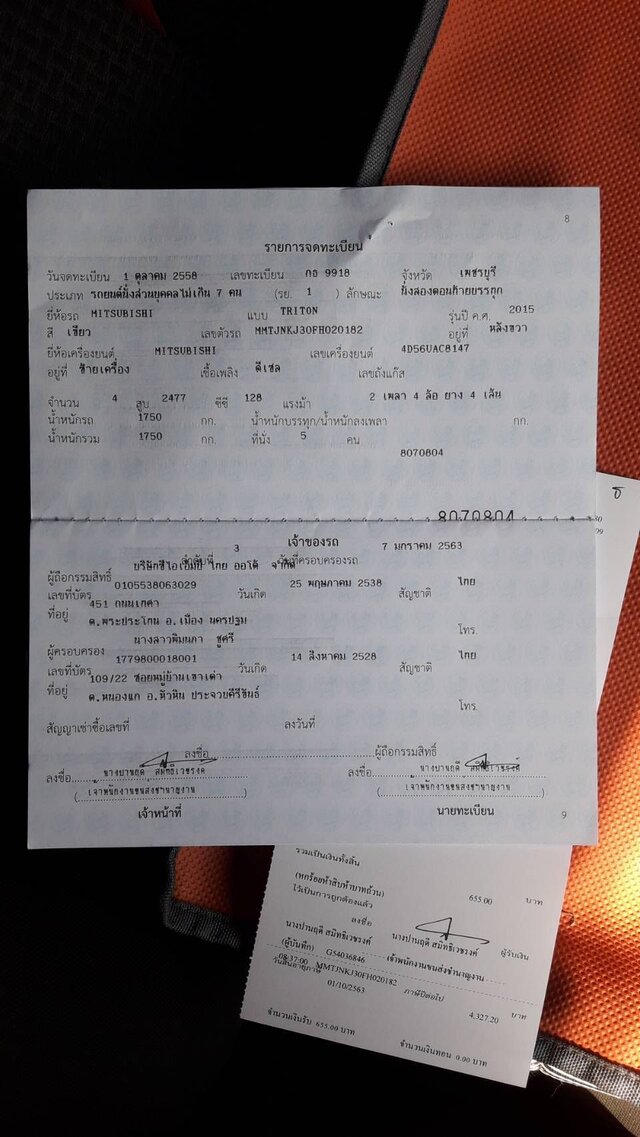 8
รายการจดทะเบียน
วันจดทะเบียน 1 ตุลาคม 2558 เลขทะเบียน กอ 9918 จังหวัด เพชรบุรี
ประเภท รถยนต์นั่งส่วนบุคคลไม่เกิน 7 คน (รย. 1 ) ลักษณะ นั่งสองตอนท้ายบรรทุก
ยี่ห้อรถ MITSUBISHI แบบ TRITON รุ่นปี ค.ศ. 2015
สี เขียว เลขตัวรถ MMTJNKJ30FH020182 อยู่ที่ หลังขวา
ยี่ห้อเครื่องยนต์ MITSUBISHI เลขเครื่องยนต์ 4D56UAC8147
อยู่ที่ ซ้ายเครื่อง เชื้อเพลิง ดีเซล เลขถังแก๊ส
จำนวน 4 สูบ 2477 ซีซี 128 แรงม้า 2 เพลา 4 ล้อ ยาง 4 เส้น
น้ำหนักรถ 1750 กก. น้ำหนักบรรทุก/น้ำหนักลงเพลา กก.
น้ำหนักรวม 1750 กก. ที่นั่ง 5 คน
8070804
8070804
เจ้าของรถ
ลำดับที่ 3 วันที่ครอบครองรถ 7 มกราคม 2563
ผู้ถือกรรมสิทธิ์ ไทย ออโต้ จำกัด
เลขที่บัตร 0105538063029 วันเกิด 25 พฤษภาคม 2538 สัญชาติ ไทย
ที่อยู่ 451 ถนนเทศา
ต.พระประโทน อ.เมือง นครปฐม โทร.
ผู้ครอบครอง นางสาวพิมนภา ชูศรี
เลขที่บัตร 1779800018001 วันเกิด 14 สิงหาคม 2528 สัญชาติ ไทย
ที่อยู่ 109/22 ซอยหมู่บ้านเขาเต่า
ต.หนองแก อ.หัวหิน ประจวบคีรีขันธ์ โทร.
สัญญาเช่าซื้อเลขที่ ลงวันที่
ลงชื่อ ผู้ถือกรรมสิทธิ์
ลงชื่อ นางปานฤดี สมิทธิเวชรงค์ ลงชื่อ นางปานฤดี สมิทธิเวชรงค์
(เจ้าพนักงานขนส่งชำนาญงาน) (เจ้าพนักงานขนส่งชำนาญงาน)
เจ้าหน้าที่ นายทะเบียน
9
รวมเป็นเงินทั้งสิ้น 655.00 บาท
(หกร้อยห้าสิบห้าบาทถ้วน)
ไว้เป็นการถูกต้องแล้ว
ลงชื่อ ผู้รับเงิน
นางปานฤดี สมิทธิเวชรงค์ นางปานฤดี สมิทธิเวชรงค์
(ผู้บันทึก) G54036846 เจ้าพนักงานขนส่งชำนาญงาน
08:37:00 MMTJNKJ30FH020182
วันสิ้นอายุภาษี 01/10/2563 ภาษีปีต่อไป 4,327.20 บาท
จำนวนเงินรับ 655.00 บาท จำนวนเงินทอน 0.00 บาท